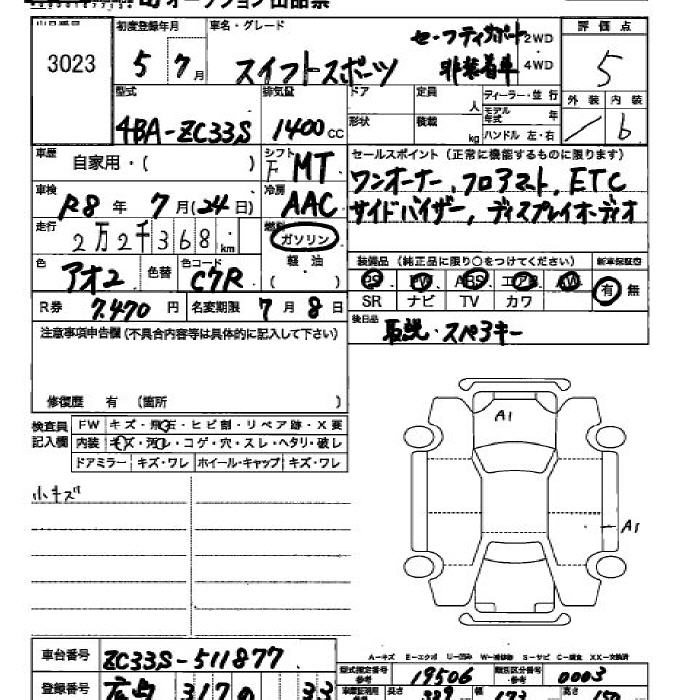 オークション出品票
出品番号 3023
初度登録年月 5 7月
車名・グレード スイフトスポーツ
セーフティサポート
非装着車
2WD
4WD
評価点 5
外装 内装 6
型式 4BA-ZC33S
排気量 1400cc
ドア 定員 人
形状 積載 kg
ディーラー・並行
モデル年式 年
ハンドル 左・右
車歴 自家用・( )
シフト F MT
車検 R8年 7月(24日)
冷房 AAC
走行 2万2千368km
燃料 ガソリン
軽油
( )
色 アオ2 色替 色コード C7R
R券 7,470円 名変期限 7月8日
セールスポイント(正常に機能するものに限ります)
ワンオーナー, フロアマスト, ETC
サイドバイザー, ディスプレイオーディオ
装備品(純正品に限り○をつけてください) 新車保証書
PS PW ABS エアB AW 有 無
SR ナビ TV カワ
後日品 取説・スペアキー
注意事項申告欄(不具合内容等は具体的に記入して下さい)
修復歴 有 (箇所 )
検査員記入欄
FW キズ・飛石・ヒビ割・リペア跡・X要
内装 キズ・汚れ・コゲ・穴・スレ・ヘタリ・破レ
ドアミラー キズ・ワレ ホイール・キャップ キズ・ワレ
小キズ
A1
A1
A-キズ E-エクボ U-凹み W-補修跡 S-サビ C-腐食 XX-交換済
車台番号 ZC33S-511877
型式指定番号 参考 19506 類別区分番号 参考 0003
登録番号 広島 317 33
長さ 389 幅 173 高さ 150